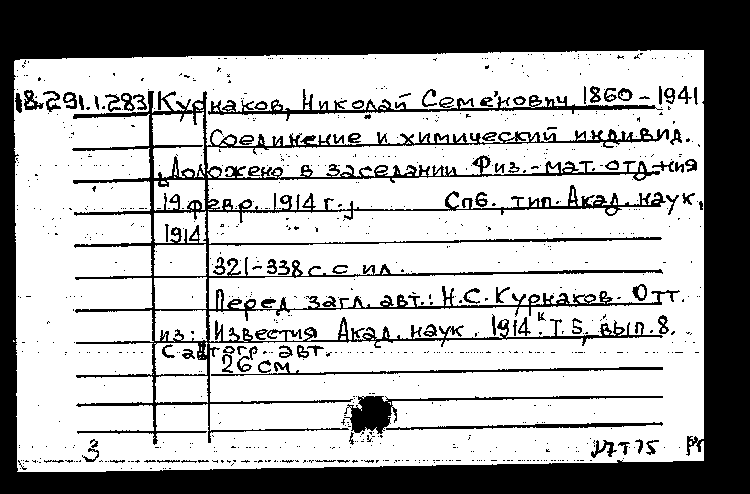 18.291.1.283 Курнаков, Николай Семёнович, 1860-1941.
Соединение и химический индивид.
[Доложено в заседании Физ.-мат. отд-ния
19 февр. 1914 г.] Спб., тип. Акад. наук,
1914
321-338 с. с ил.
Перед загл. авт.: Н.С. Курнаков. Отт.
из: Известия Акад. наук. 1914. Т. 5, вып. 8.
С автогр. авт.
26 см.
3